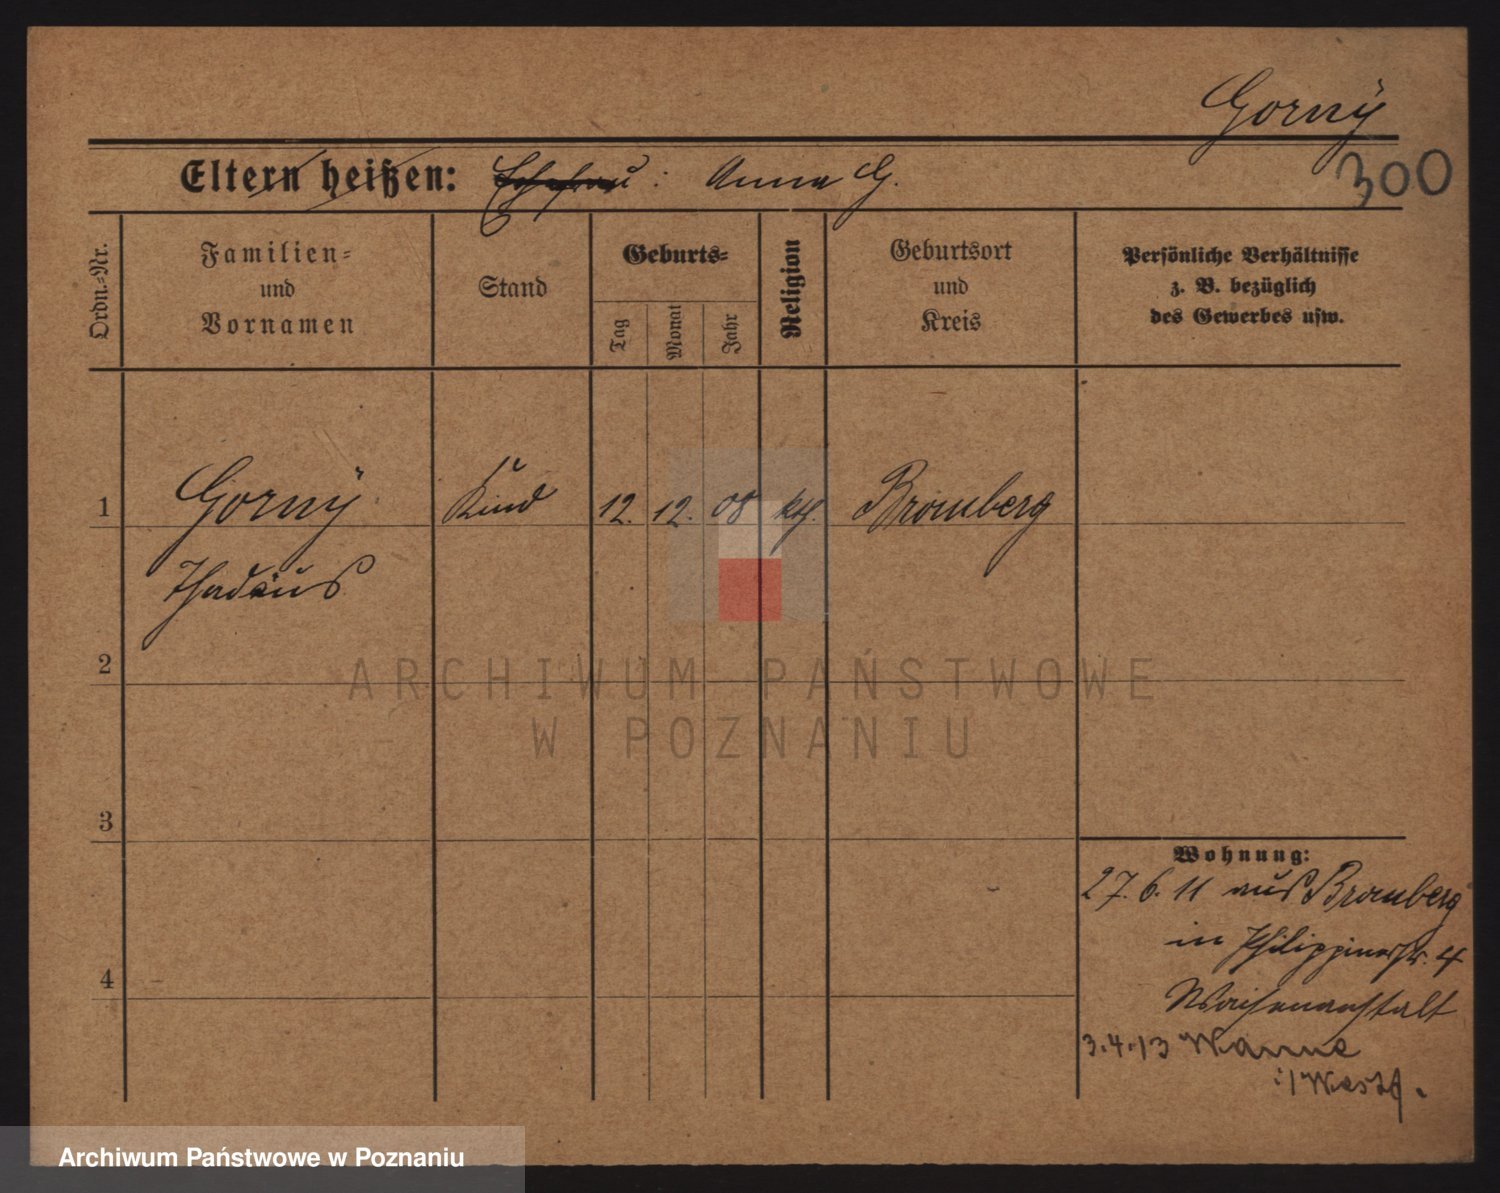 Gorny
300
Eltern heißen: : Anna G.
Ordn.-Nr.
Familien-
und
Vornamen
Stand
Geburts-
Tag
Monat
Jahr
Religion
Geburtsort
und
Kreis
Persönliche Verhältnisse
z. B. bezüglich
des Gewerbes usw.
1
Gorny
Kind
12.
12.
08
kth.
Bromberg
Thadäus
2
3
4
Wohnung:
27.6.11 aus Bromberg
in Philippinenstr. 4
Waisenanstalt
3.4.13 Wanne
i/Westf.
ARCHIWUM PAŃSTWOWE
W POZNANIU
Archiwum Państwowe w Poznaniu